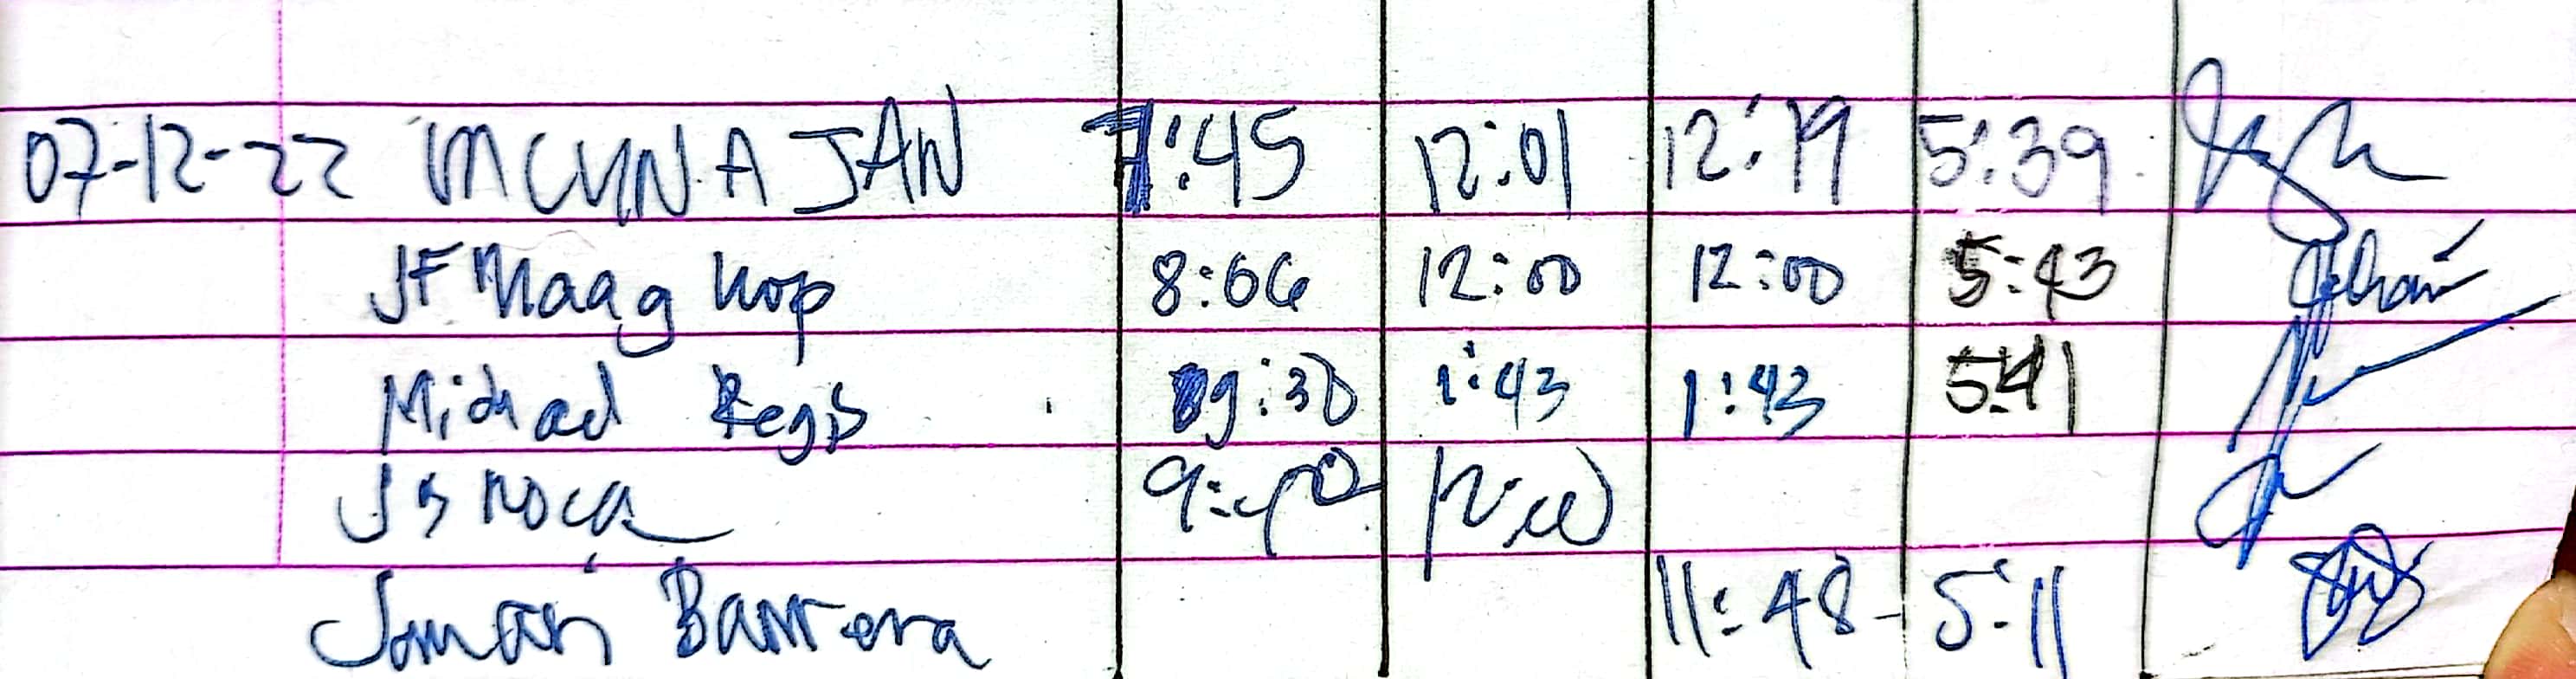 07-12-22 MCUNA JAN 7:45 12:01 12:19 5:39
JF Maag hop 8:06 12:00 12:00 5:43
Michael Regis 09:30 1:43 1:43 5:41
JS Roca 9:40 12:00
Jomari Barrera 11:48 - 5:11